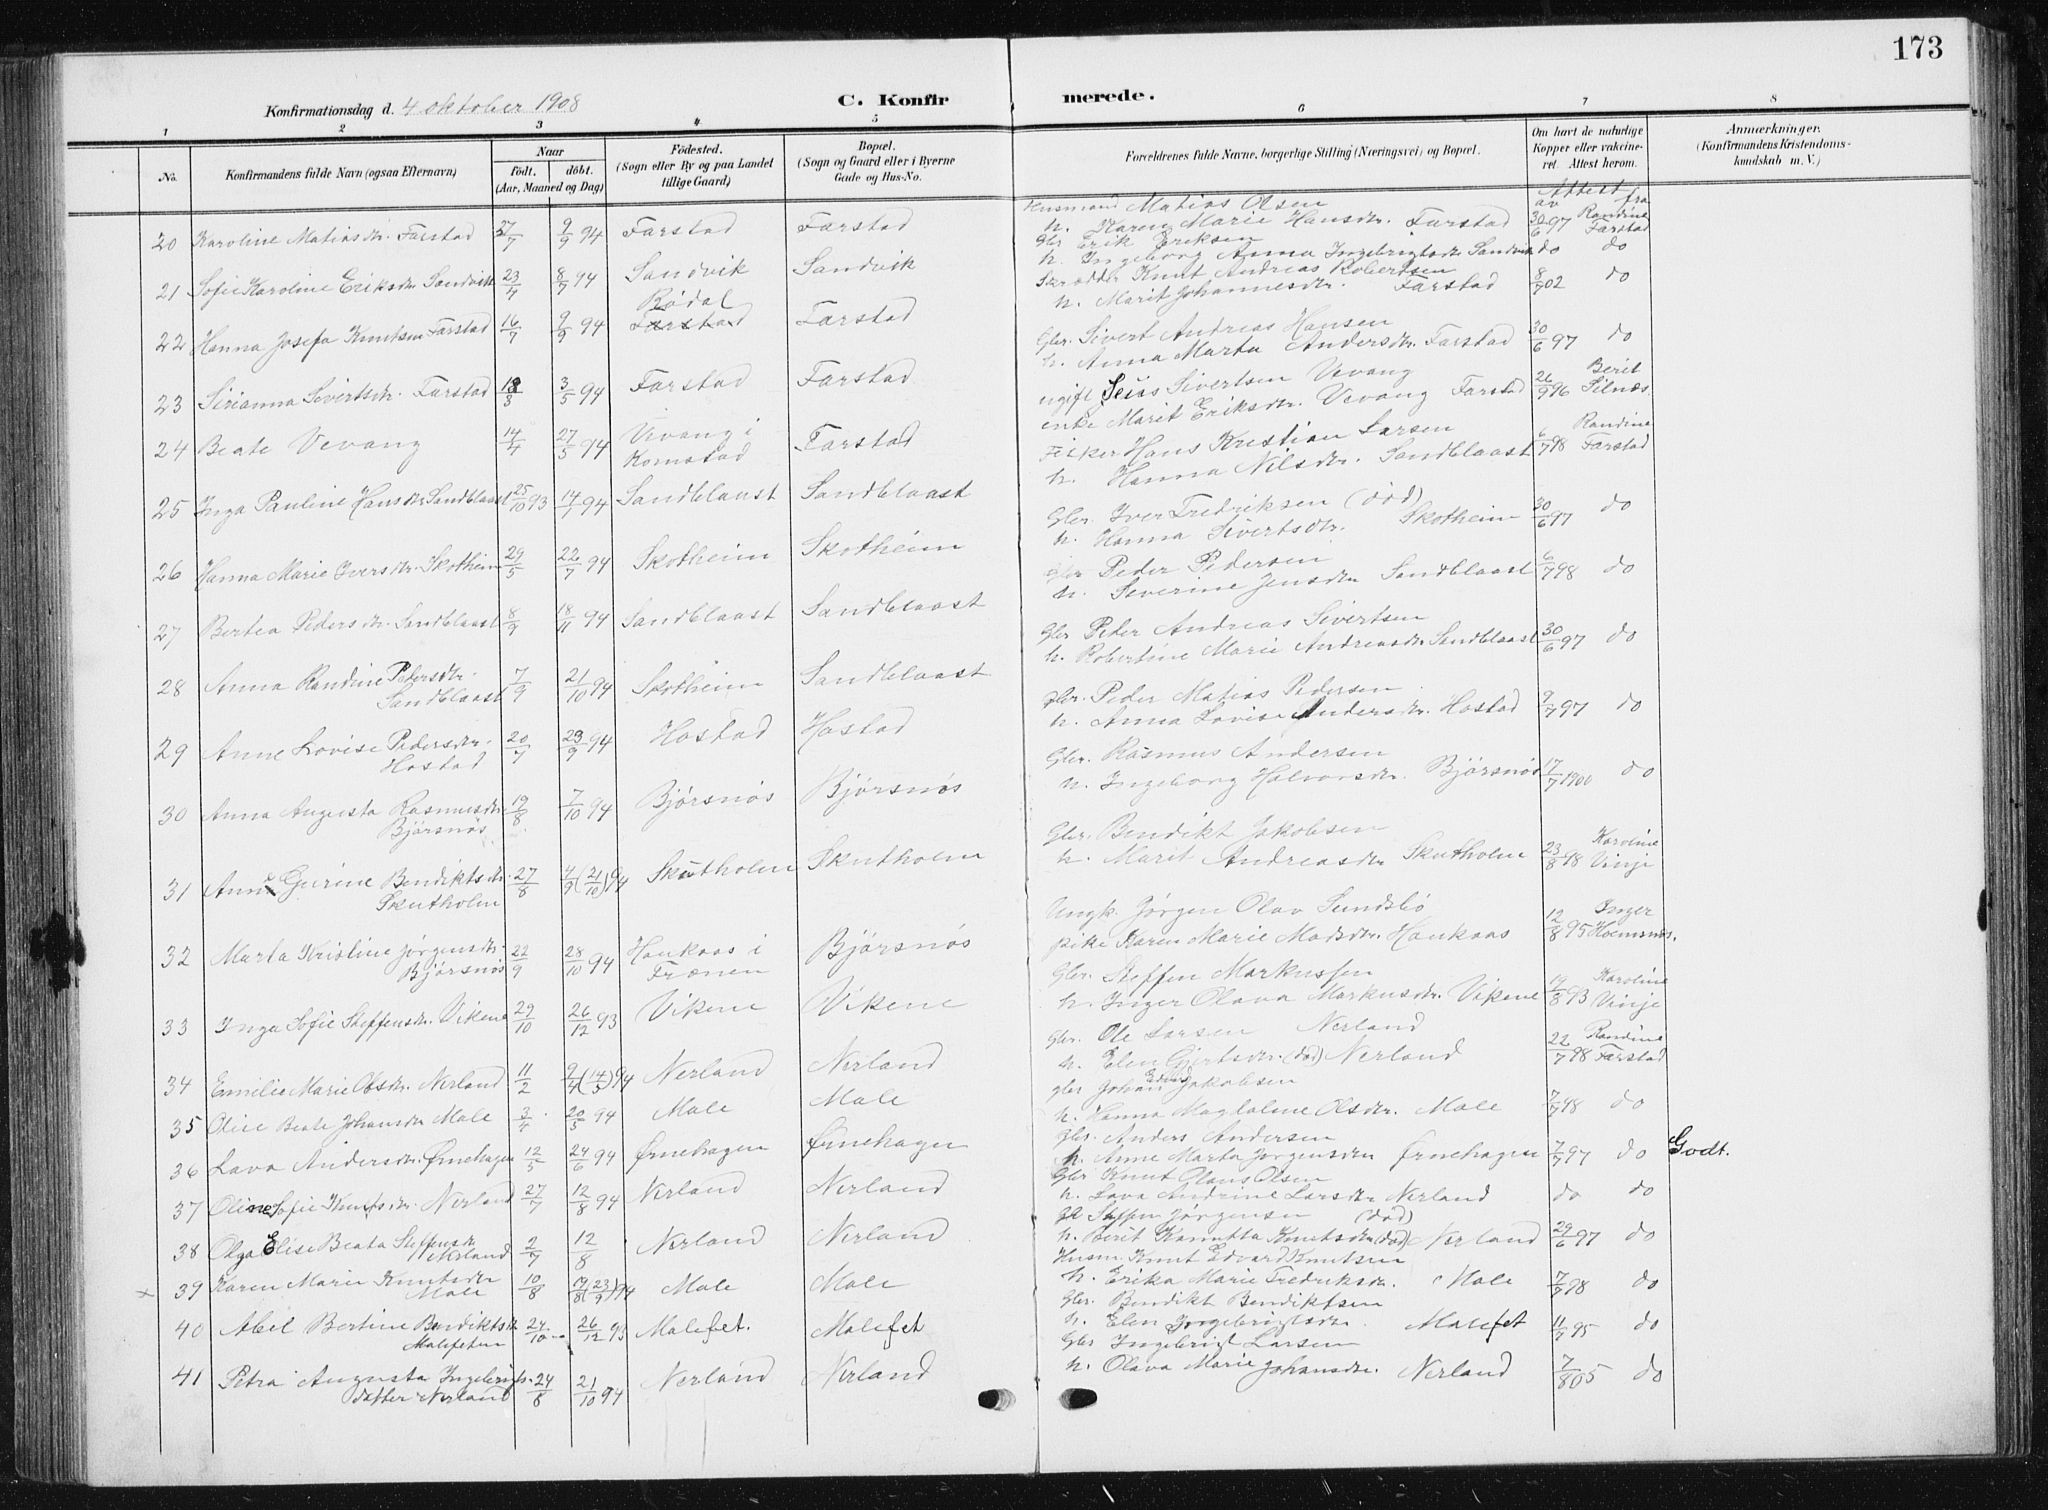 173
Konfirmationsdag d. 4 oktober 1908
C. Konfirmerede.
1 2 3 4 5 6 7 8
No. Konfirmandens fulde Navn (ogsaa Efternavn) Naar født. døbt. (Aar, Maaned og Dag) Fødested. (Sogn eller By og paa Landet tillige Gaard) Bopæl. (Sogn og Gaard eller i Byerne Gade og Hus-No. Forældrenes fulde Navne, borgerlige Stilling (Næringsvei) og Bopæl. Om havt de naturlige Kopper eller vakcineret. Attest herom. Anmærkninger. (Konfirmandens Kristendomskundskab m. V.)
Attest av fra
Husmand Matias Olsen
20 Karoline Matiasdtr. Farstad 27/7 9/9 94 Farstad Farstad h. Karen Marie Hansdtr. Farstad 30/6 97 Randine Farstad
Gbr. Erik Eriksen
21 Sofie Karoline Eriksdtr. Sandvik 23/4 8/7 94 Sandvik Sandvik h. Ingeborg Anna Ingebrigtsdtr. Sandvik do do
Skrædder Knut Andreas Robertsen
22 Hanna Josefa Knutsen Farstad 16/7 9/9 94 Bødal Farstad Farstad h. Marit Johannesdtr. Farstad 8/7 02 do
Gbr. Sivert Andreas Hansen
23 Sirianna Sivertsdtr. Farstad 18/3 3/5 94 Farstad Farstad h. Anna Marta Andersdtr. Farstad 30/6 97 do
ugift Sivertsen Vevang
24 Beate Vevang 14/4 27/5 94 Vevang i Kornstad Farstad enke Marit Eriksdtr. Vevang Farstad 26/9 96 Berit Silnæs
Fisker Hans Kristian Larsen
25 Inga Pauline Hansdtr Sandblaast 25/10 93 14/1 94 Sandblaast Sandblaast h. Hanna Nilsdtr. Sandblaast 6/7 98 Randine Farstad
Gbr. Iver Fredriksen (død)
26 Hanna Marie Iversdtr. Skotheim 29/5 22/7 94 Skotheim Skotheim h. Hanna Sivertsdtr. Skotheim 30/6 97 do
Gbr Peder Pedersen
27 Bertea Pedersdtr. Sandblaast 8/9 18/11 94 Sandblaast Sandblaast h. Severine Jensdtr Sandblaast 6/7 98 do
Gbr Peder Andreas Sivertsen
28 Anna Randine Pedersdtr. Sandblaast 7/9 21/10 94 Skotheim Sandblaast h. Robertine Marie Andreasdtr Sandblaast 30/6 97 do
Gbr. Peder Matias Pedersen
29 Anne Lovise Pedersdtr. Hostad 20/7 23/9 94 Hostad Hostad h. Anna Lovise Andersdtr. Hostad 9/7 97 do
Gbr. Rasmus Andersen
30 Anna Augusta Rasmusdtr. Bjørsnøs 19/8 7/10 94 Bjørsnøs Bjørsnøs h. Ingeborg Halvorsdtr. Bjørsnøs 17/7 1900 do
Gbr. Bendikt Jakobsen
31 Anne Gurine Bendiktsdtr. Skutholm 27/8 4/9 (21/10) 94 Skutholm Skutholm h. Marit Andreasdtr Skutholm 23/8 98 Karoline Vinje
Ungk. Jørgen Olav Sundsbø
32 Marta Kristine Jørgensdtr. Bjørsnøs 22/9 28/10 94 Haukaas i Frænen Bjørsnøs pike Karen Marie Madsdtr. Haukaas 12/8 95 Inger Holmsnøs.
Gbr. Steffen Markussen
33 Inga Sofie Steffensdtr. Vikene 29/10 26/12 93 Vikene Vikene h. Inger Olava Markusdtr. Vikene 19/8 93 Karoline Vinje
Gbr. Ole Larsen Nerland
34 Emelie Marie Olsdtr. Nerland 11/2 9/4 (14/5) 94 Nerland Nerland h. Elen Gjertsdtr. (død) Nerland 22/7 98 Randine Farstad
gbr Johan Edvin Jakobsen
35 Oline Beate Johansdtr Male 3/4 20/5 94 Male Male h. Hanna Magdalene Olsdtr. Male 7/7 98 do
Gbr. Anders Andersen
36 Lava Andersdtr. Ørnehagen 12/5 24/6 94 Ørnehagen Ørnehagen h. Anne Marta Jørgensdtr Ørnehagen 7/7 97 do Godt.
Gbr Knut Olaus Olsen
37 Oline Sofie Knutsdtr. Nerland 27/7 12/8 94 Nerland Nerland h. Lava Andrine Larsdtr Nerland do do
Gbr Steffen Jørgensen (død)
38 Olga Elise Beata Steffensdtr Nerland 2/7 12/8 Nerland Nerland h. Berit Kanutta Knutsdtr (død) Nerland 29/6 97 do
Husm. Knut Edvard Knutsen
39 Karen Marie Knutsdtr Male 10/8 19/8 (23/9) 94 Male Male h. Erika Marie Fredriksdtr. Male 7/7 98 do
Gbr. Bendikt Bendiktsen
40 Abel Bertine Bendiktsdtr Malefeten 24/10 26/12 93 Malefet. Malefet h. Elen Ingebrigtsdtr. Malefet 11/7 95 do
Gbr Ingebrigt Larsen
41 Petra Augusta Ingebrigtsdatter Nerland 24/8 21/10 94 Nerland Nerland h. Olava Marie Johansdtr. Nerland 7/8 05 do